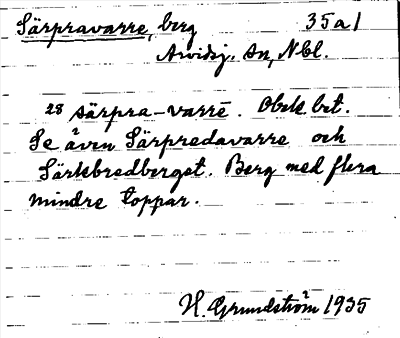 Särpravarre, berg 35a1
Arvidsj. sn, Nbl.
28 särpra-varrē. Obek. bet.
Se även Särpredavarre och
Särkbredberget. Berg med flera
mindre toppar.
H. Grundström 1935